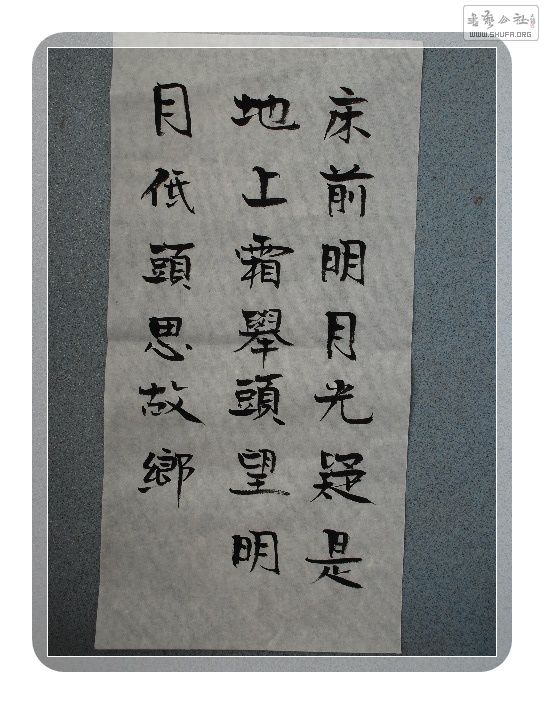 床前明月光疑是
地上霜舉頭望明
月低頭思故鄉
书艺公社
WWW.SHUFA.ORG